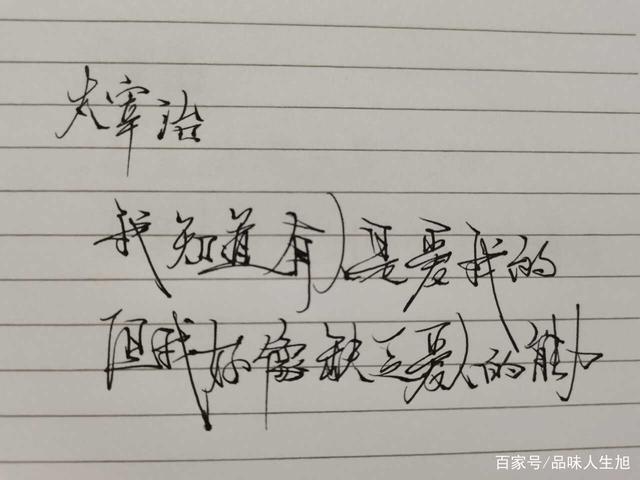 太宰治
我知道有人是爱我的
但我好像缺乏爱人的能力
百家号/品味人生旭